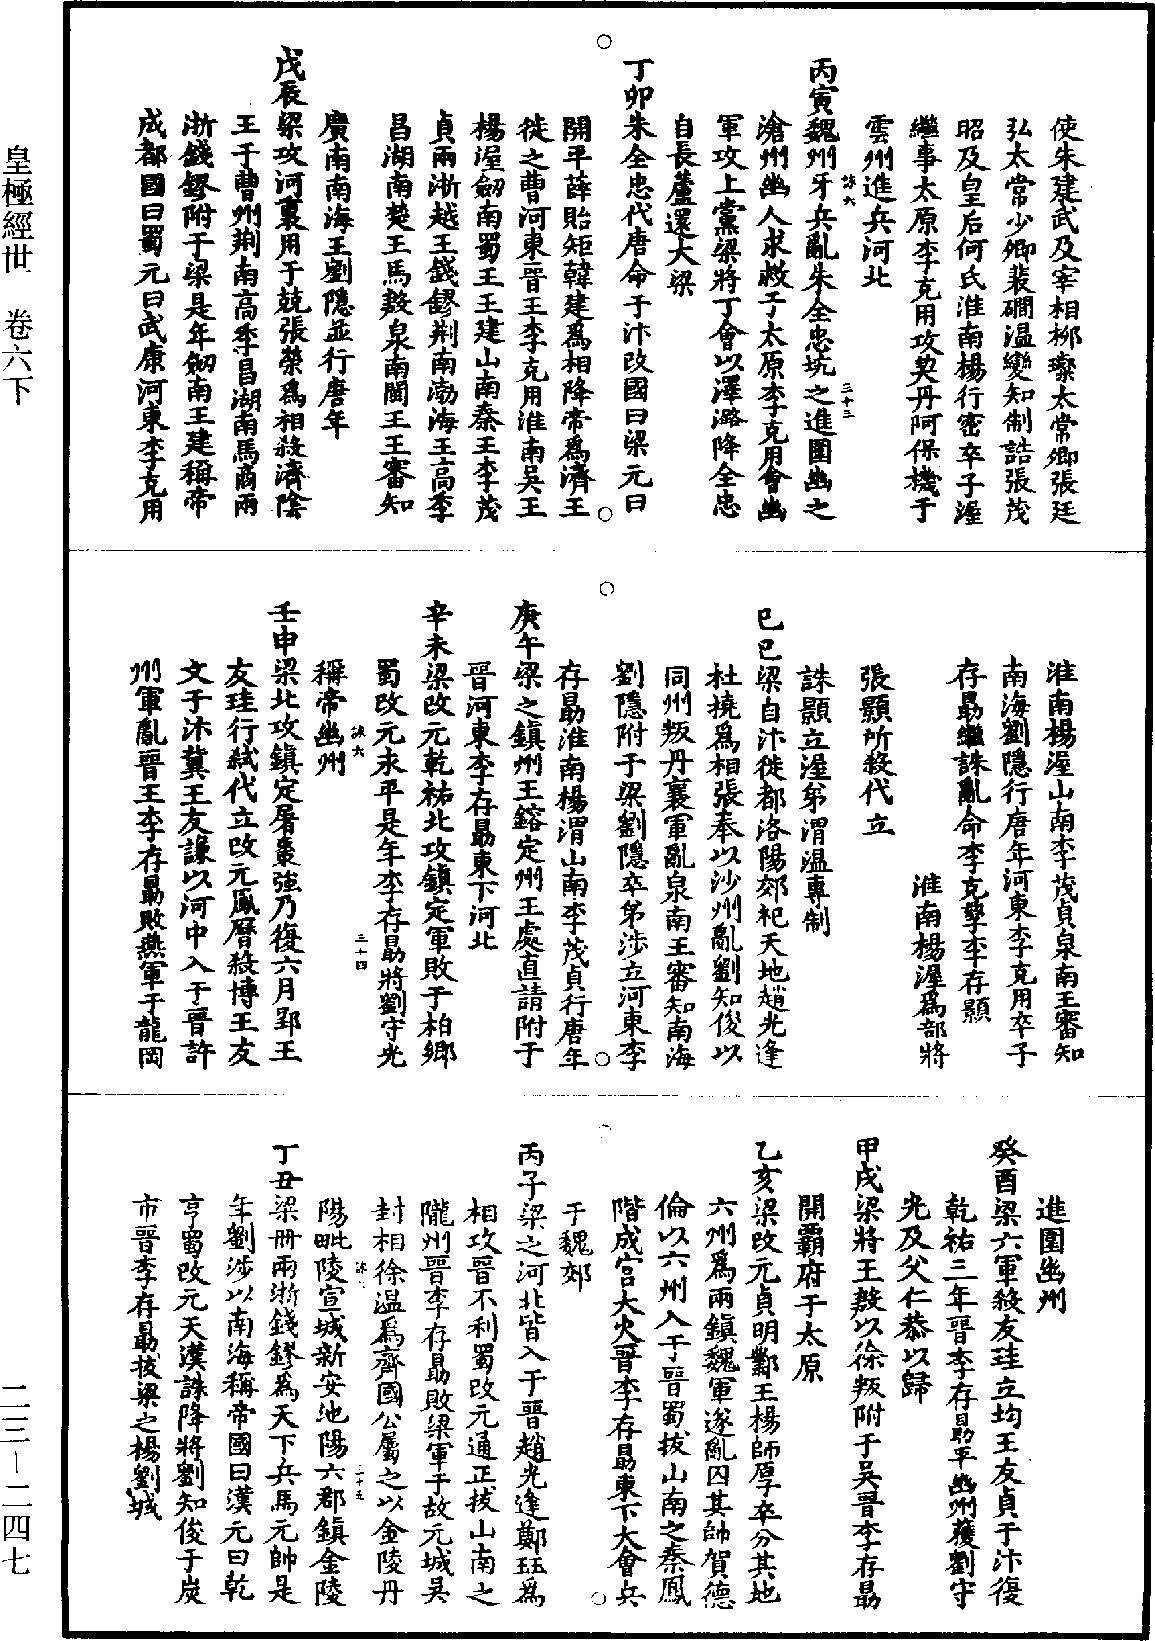 使朱建武及宰相柳璨太常卿張廷
弘太常少卿裴磵溫變知制誥張茂
昭及皇后何氏淮南楊行密卒子渥
繼事太原李克用攻契丹阿保機于
雲州進兵河北
丙寅魏州牙兵亂朱全忠坑之進圍幽之
滄州幽人求救于太原李克用會幽
軍攻上黨梁將丁會以澤潞降全忠
自長蘆還大梁
丁卯朱全忠代唐命于汴改國曰梁元曰
開平薛貽矩韓建爲相降帝爲濟王
徙之曹河東晉王李克用淮南吳王
楊渥劒南蜀王王建山南秦王李茂
貞兩浙越王錢鏐荆南渤海王高季
昌湖南楚王馬殷泉南閩王王審知
廣南南海王劉隱並行唐年
戊辰梁攻河東用于兢張榮爲相殺濟陰
王于曹州荆南高季昌湖南馬商兩
浙錢鏐附于梁是年劒南王建稱帝
成都國曰蜀元曰武康河東李克用
淮南楊渥山南李茂貞泉南王審知
南海劉隱行唐年河東李克用卒子
存勗繼誅亂命李克孥李存顥
淮南楊渥爲部將
張顥所殺代立
誅顥立渥弟渭溫專制
己巳梁自汴徙都洛陽郊祀天地趙光逢
杜撓爲相張奉以沙州亂劉知俊以
同州叛丹襄軍亂泉南王審知南海
劉隱附于梁劉隱卒弟涉立河東李
存勗淮南楊渭山南李茂貞行唐年
庚午梁之鎮州王鎔定州王處直請附于
晉河東李存勗東下河北
辛未梁改元乾祐北攻鎮定軍敗于柏鄉
蜀改元永平是年李存勗將劉守光
稱帝幽州
壬申梁北攻鎮定屠棗強乃復六月郢王
友珪行弑代立改元鳳曆殺博王友
文于汴冀王友謙以河中入于晉許
州軍亂晉王李存勗敗燕軍于龍岡
進圍幽州
癸酉梁六軍殺友珪立均王友貞于汴復
乾祐三年晉李存勗平幽州獲劉守
光及父仁恭以歸
甲戌梁將王殷以徐叛附于吳晉李存勗
開霸府于太原
乙亥梁改元貞明鄴王楊師厚卒分其地
六州爲兩鎮魏軍遂亂囚其帥賀德
倫以六州入于晉蜀拔山南之秦鳳
階成宮大火晉李存勗東下大會兵
于魏郊
丙子梁之河北皆入于晉趙光逢鄭珏爲
相攻晉不利蜀改元通正拔山南之
隴州晉李存勗敗梁軍于故元城吳
封相徐溫爲齊國公屬之以金陵丹
陽毗陵宣城新安池陽六郡鎮金陵
丁丑梁冊兩浙錢鏐爲天下兵馬元帥是
年劉涉以南海稱帝國曰漢元曰乾
亨蜀改元天漢誅降將劉知俊于炭
市晉李存勗拔梁之楊劉城
皇極經世 卷六下
二三—二四七